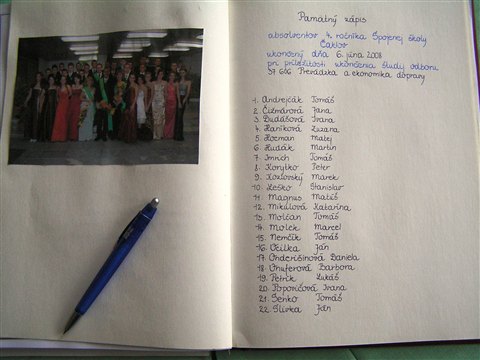 Pamätný zápis
absolventov 4. ročníka Spojenej školy
Čaklov
ukončený dňa 6. júna 2008
pri príležitosti ukončenia študij. odboru
Prevádzka a ekonomika dopravy
1. Andrejčák Tomáš
2. Čižmárová Jana
3. Dudášová Ivana
4. Haníková Zuzana
5. Hocman Matej
6. Hudák Martin
7. Imrich Tomáš
8. Korytko Peter
9. Kozlovský Marek
10. Leško Stanislav
11. Magnus Matúš
12. Mikulová Katarína
13. Molčan Tomáš
14. Molek Marcel
15. Nemčík Tomáš
16. Ocilka Ján
17. Onderišinová Daniela
18. Onuferová Barbora
19. Petrik Lukáš
20. Popovičová Ivana
21. Senko Tomáš
22. Slivka Ján